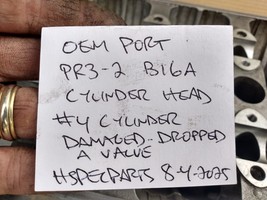 OEM PORT
PR3-2 B16A
CYLINDER HEAD
#4 CYLINDER
DAMAGED.. DROPPED
A VALVE
HSPECPARTS 8-4-2025